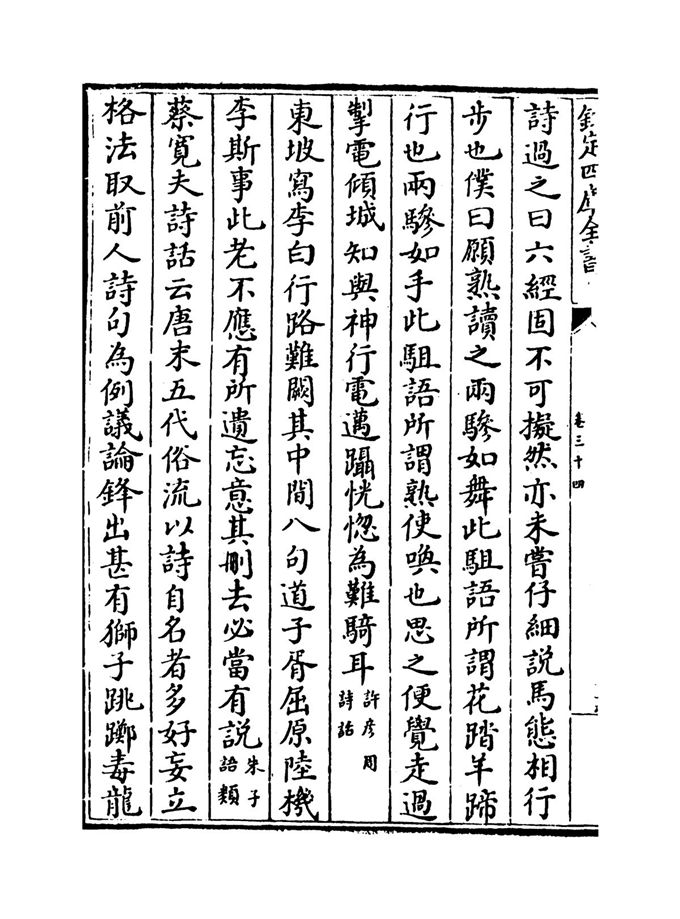 欽定四庫全書
卷三十四
詩過之曰六經固不可擬然亦未嘗仔細説馬態相行
步也僕曰願熟讀之兩驂如舞此駔語所謂花踏羊蹄
行也兩驂如手此駔語所謂熟使喚也思之便覺走過
掣電傾城知與神行電邁躡恍惚為難騎耳許彦周詩話
東坡寫李白行路難闕其中間八句道子胥屈原陸機
李斯事此老不應有所遺忘意其刪去必當有説朱子語類
蔡寛夫詩話云唐末五代俗流以詩自名者多好妄立
格法取前人詩句為例議論鋒出甚有獅子跳躑毒龍